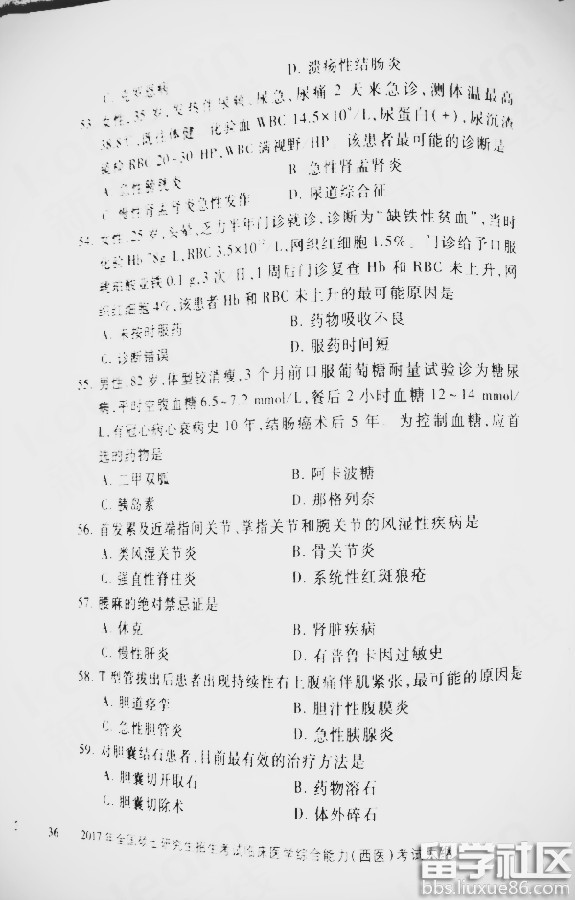 D. 溃疡性结肠炎
53. 女性,35岁,发热伴尿频、尿急、尿痛2天来急诊,测体温最高
38.8℃,既往体健。化验血WBC 14.5×10⁹/L,尿蛋白(+),尿沉渣
镜检RBC 20~30/HP,WBC满视野/HP。该患者最可能的诊断是
A. 急性膀胱炎
B. 急性肾盂肾炎
C. 慢性肾盂肾炎急性发作
D. 尿道综合征
54. 女性,25岁,头晕、乏力半年门诊就诊,诊断为“缺铁性贫血”,当时
RBC 3.5×10¹²/L,网织红细胞1.5%。门诊给予口服
0.1 g,3次/日,1周后门诊复查Hb和RBC未上升,网
织红细胞4%,该患者Hb和RBC未上升的最可能原因是
A. 未按时服药
B. 药物吸收不良
C. 诊断错误
D. 服药时间短
55. 男性,82岁,体型较消瘦,3个月前口服葡萄糖耐量试验诊为糖尿
病,平时空腹血糖6.5~7.2 mmol/L,餐后2小时血糖12~14 mmol/
L,有冠心病心衰病史10年,结肠癌术后5年。为控制血糖,应首
选的药物是
A. 二甲双胍
B. 阿卡波糖
C. 胰岛素
D. 那格列奈
56. 首发累及近端指间关节、掌指关节和腕关节的风湿性疾病是
A. 类风湿关节炎
B. 骨关节炎
C. 强直性脊柱炎
D. 系统性红斑狼疮
57. 腰麻的绝对禁忌证是
A. 休克
B. 肾脏疾病
C. 慢性肝炎
D. 有普鲁卡因过敏史
58. T型管拔出后患者出现持续性右上腹痛伴肌紧张,最可能的原因是
A. 胆道痉挛
B. 胆汁性腹膜炎
C. 急性胆管炎
D. 急性胰腺炎
59. 对胆囊结石患者,目前最有效的治疗方法是
A. 胆囊切开取石
B. 药物溶石
C. 胆囊切除术
D. 体外碎石
36 2017年全国硕士研究生招生考试临床医学综合能力(西医)考试
留学社区
bbs.liuxue86.com